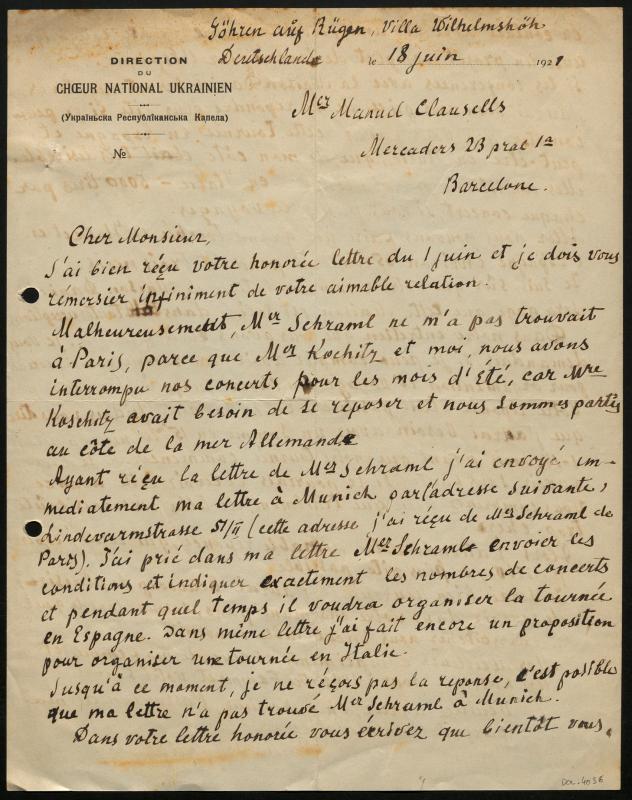 Göhren auf Rügen, Villa Wilhelmshöh
Deutschland le 18 juin 1921
DIRECTION
DU
CHŒUR NATIONAL UKRAINIEN
(Украінська Республіканська Капела)
№
Mer Manuel Clausells
Mercaders 23 pral 1a
Barcelone.
Cher Monsieur,
J'ai bien réçu votre honorée lettre du 1 juin et je dois vous
rémersier infiniment de votre aimable relation.
Malheureusement, Mer Schraml ne m'a pas trouvait
à Paris, parce que Mer Kochitz et moi, nous avons
interrompu nos concerts pour les mois d'Été, car Mre
Koschitz avait besoin de se reposer et nous sommes partis
au côte de la mer Allemande
Ayant réçu la lettre de Mer Schraml j'ai envoyé im-
mediatement ma lettre à Munich par l'adresse suivante,
Lindewarmstrasse 51/II (cette adresse j'ai réçu de Mer Schraml de
Paris). J'ai prié dans ma lettre Mer Schraml envoier les
conditions et indiquer exactement les nombres de concerts
et pendant quel temps il voudra organiser la tournée
en Espagne. Dans même lettre j'ai fait encore un proposition
pour organiser une tournée en Italie.
Jusqu'à ce moment, je ne réçois pas la reponse, c'est posible
que ma lettre n'a pas trouvé Mer Schraml à Munich.
Dans votre lettre honorée vous écrivez que bientôt vous
Doc. 4036